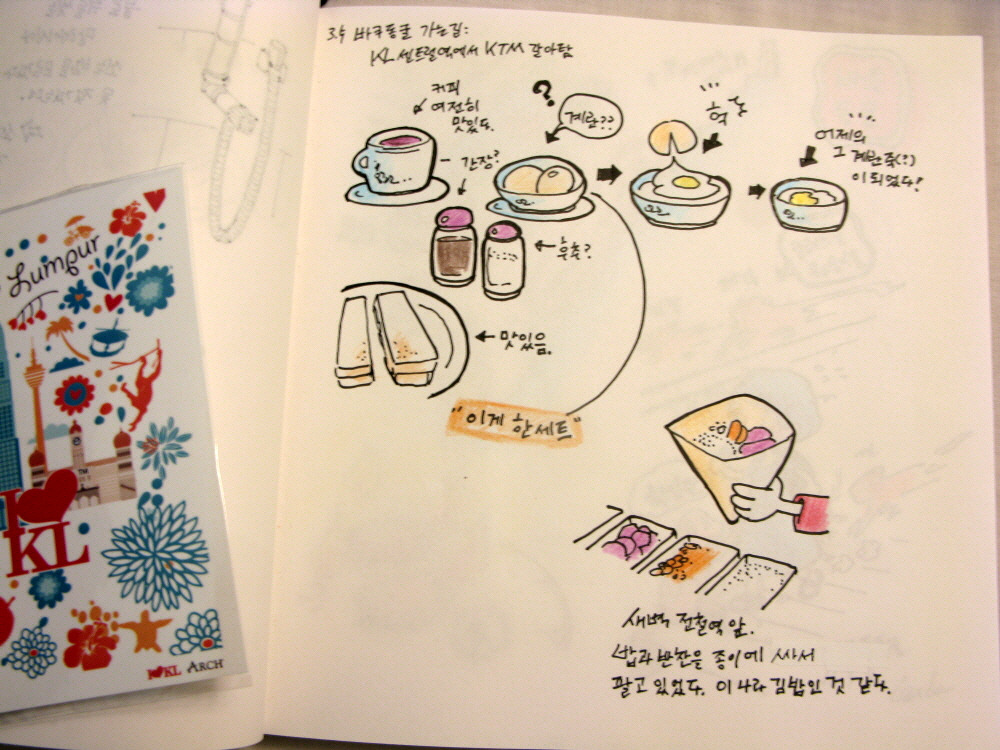 3.4 바투동굴 가는길:
KL 센트럴역에서 KTM 갈아탐
커피
여전히
맛있다.
간장?
?
계란??
헉
어제의
그 계란죽(?)
이 되었다!
후추?
맛있음.
"이게 한세트"
새벽 전철역 앞.
밥과 반찬을 종이에 싸서
팔고 있었다. 이 나라 김밥인 것 같다.
Lumpur
I
KL
I KL ARCH